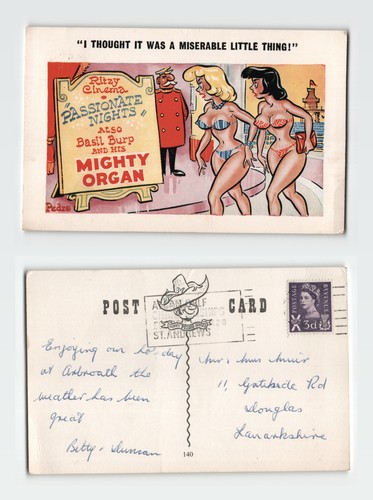 "I THOUGHT IT WAS A MISERABLE LITTLE THING!"
Ritzy
Cinema
"PASSIONATE
NIGHTS"
ALSO
Basil Burp
AND HIS
MIGHTY
ORGAN
Pedro
POST CARD
GOLF
ST. ANDREWS
POSTAGE
REVENUE
3d
Enjoying our holiday
at Arbroath the
weather has been
great
Betty & Duncan
Mr & Mrs Muir
11, Gateside Rd
Douglas
Lanarkshire
140